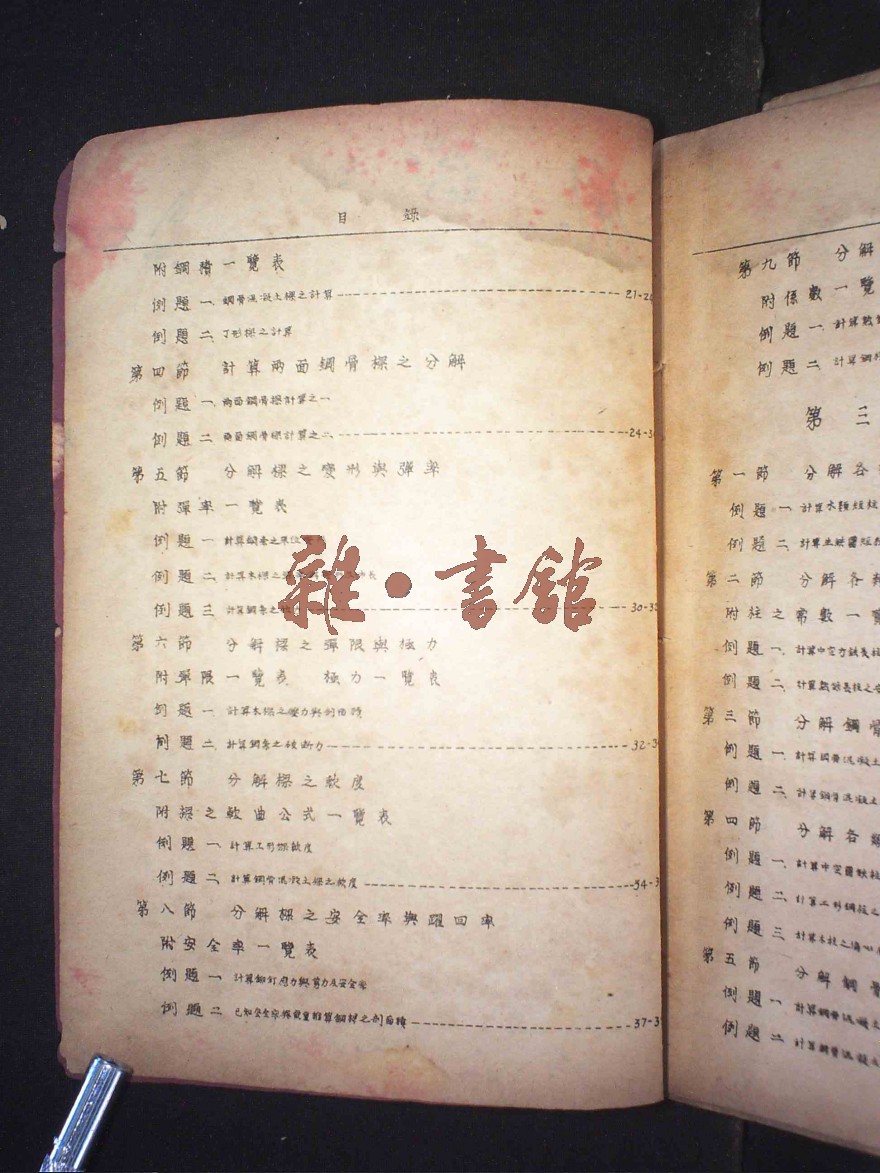 目 錄
附鋼積一覽表
例題一、鋼骨混凝土樑之計算 21-2
例題二、丁形樑之計算
第四節 計算兩面鋼骨樑之分解
例題一、兩面鋼骨樑計算之一
例題二、兩面鋼骨樑計算之二、 24-3
第五節 分解樑之變形與彈率
附彈率一覽表
例題一 計算鋼條之單位
例題二、計算木樑之
例題三 計算鋼條之 30-32
第六節 分解樑之彈限與極力
附彈限一覽表 極力一覽表
例題一 計算木樑之壓力與剖面積
例題二、計算鋼條之破斷力 32-3
第七節 分解樑之軟度
附樑之軟曲公式一覽表
例題一、計算工形樑軟度
例題二、計算鋼骨混凝土樑之軟度 34-3
第八節 分解樑之安全率與躍回率
附安全率一覽表
例題一、計算鉚釘應力與剪力及安全率
例題二 已知安全率與載重推算鋼材之剖面積 37-3
雜·書館
第九節 分解
附係數一覽
例題一、計算
例題二、計算鋼
第三
第一節 分解各
例題一、計算木
例題二、計算生鉄圓短
第二節 分解各
附柱之常數一覽
例題一、計算中空方鉄長柱
例題二、計算 長柱之安
第三節 分解鋼骨
例題一、計算鋼骨混凝土
例題二、計算鋼骨混凝土
第四節 分解各類
例題一、計算中空圓鉄柱
例題二、計算工形鋼柱之
例題三、計算木柱之偏心
第五節 分解鋼骨
例題一、計算鋼骨混凝土
例題二、計算鋼骨混凝土